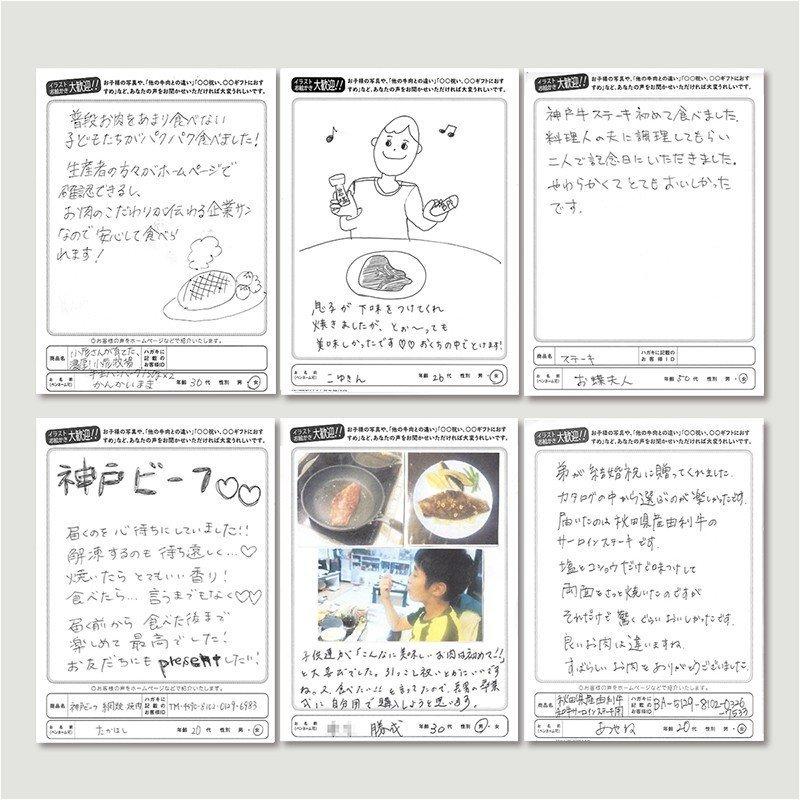 イラスト お絵かき 大歓迎!! お子様の写真や、「他の牛肉との違い」「〇〇祝い、〇〇ギフトにおすすめ」など、あなたの声をお聞かせいただければ大変うれしいです。
普段お肉をあまり食べない
子どもたちがパクパク食べました!
生産者の方々がホームページで
確認できるし、
お肉のこだわりが伝わる企業サン
なので安心して食べら
れます!
◎お客様の声をホームページなどで紹介いたします。
商品名 ハガキに記載のお客様ID
お名前(ペンネーム可) かんかいまき 年齢 30代 性別 男・女
イラスト お絵かき 大歓迎!! お子様の写真や、「他の牛肉との違い」「〇〇祝い、〇〇ギフトにおすすめ」など、あなたの声をお聞かせいただければ大変うれしいです。
息子が下味をつけてくれ
焼きましたが、とぉ〜っても
美味しかったです♡♡おくちの中でとけます!
お名前(ペンネーム可) こゆきん 年齢 26代 性別 男・女
イラスト お絵かき 大歓迎!! お子様の写真や、「他の牛肉との違い」「〇〇祝い、〇〇ギフトにおすすめ」など、あなたの声をお聞かせいただければ大変うれしいです。
神戸牛ステーキ初めて食べました。
料理人の夫に調理してもらい
二人で記念日にいただきました。
やわらかくてとてもおいしかった
です。
商品名 ステーキ ハガキに記載のお客様ID
お名前(ペンネーム可) お蝶夫人 年齢 50代 性別 男・女
イラスト お絵かき 大歓迎!! お子様の写真や、「他の牛肉との違い」「〇〇祝い、〇〇ギフトにおすすめ」など、あなたの声をお聞かせいただければ大変うれしいです。
神戸ビーフ♡♡
届くのを心待ちにしていました!!
解凍するのも待ち遠しく…♡
焼いたらとてもいい香り!
食べたら…言うまでもなく♡♡
届く前から食べた後まで
楽しめて最高でした!
お友だちにもpresentしたい!
◎お客様の声をホームページなどで紹介いたします。
商品名 神戸ビーフ 網焼 焼肉 ハガキに記載のお客様ID TM-4590-8102-0129-6983
お名前(ペンネーム可) たかはし 年齢 20代 性別 男・女
イラスト お絵かき 大歓迎!! お子様の写真や、「他の牛肉との違い」「〇〇祝い、〇〇ギフトにおすすめ」など、あなたの声をお聞かせいただければ大変うれしいです。
子供達が「こんなに美味しいお肉は初めて!!」
と大喜びでした。引っこし祝いとかにいいです
ね。
式に自分用で購入しようと思います。
お名前(ペンネーム可) 勝成 年齢 30代 性別 男・女
イラスト お絵かき 大歓迎!! お子様の写真や、「他の牛肉との違い」「〇〇祝い、〇〇ギフトにおすすめ」など、あなたの声をお聞かせいただければ大変うれしいです。
弟が結婚祝に贈ってくれました。
カタログの中から選ぶのが楽しかったです。
届いたのは秋田県産由利牛の
サーロインステーキです。
塩とコショウだけで味つけして
両面をさっと焼いたのですが
それだけで驚くぐらいおいしかったです。
良いお肉は違いますね。
すばらしいお肉をありがとうございました。
◎お客様の声をホームページなどで紹介いたします。
商品名 秋田県産由利牛 ハガキに記載のお客様ID BA-5129-8102-0326
お名前(ペンネーム可) あやね 年齢 20代 性別 男・女